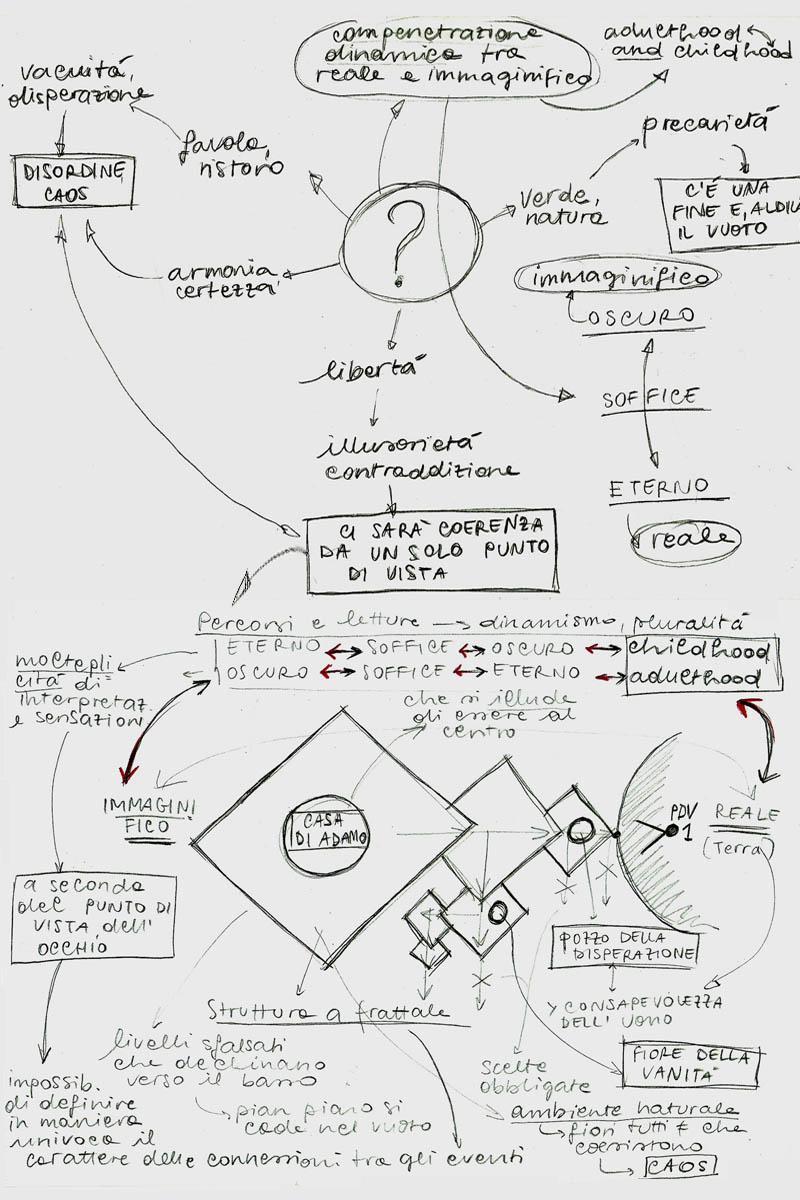 compenetrazione
dinamica tra
reale e immaginifico
adulthood
and childhood
vacuità,
disperazione
favola,
ristoro
DISORDINE
CAOS
precarietà
C'È UNA
FINE E, ALDILÀ
IL VUOTO
verde,
natura
?
armonia
certezza
immaginifico
OSCURO
libertà
SOFFICE
illusorietà
contraddizione
ETERNO
reale
CI SARÀ COERENZA
DA UN SOLO PUNTO
DI VISTA
Percorsi e letture → dinamismo, pluralità
ETERNO ↔ SOFFICE ↔ OSCURO ↔ childhood
OSCURO ↔ SOFFICE ↔ ETERNO ↔ adulthood
moltepli
cità di
interpretaz.
e sensazioni
che si illude
di essere al
centro
IMMAGINI
FICO
CASA
DI ADAMO
PDV
1
REALE
(Terra)
a seconda
del PUNTO DI
VISTA dell'
OCCHIO
POZZO DELLA
DISPERAZIONE
Struttura a frattale
CONSAPEVOLEZZA
DELL'UOMO
livelli sfalsati
che declinano
verso il basso
FIORE DELLA
VANITÀ
scelte
obbligate
pian piano si
cade nel vuoto
ambiente naturale
fiori tutti ≠ che
coesistono
CAOS
impossib.
di definire
in maniera
univoca il
carattere delle connessioni tra gli eventi